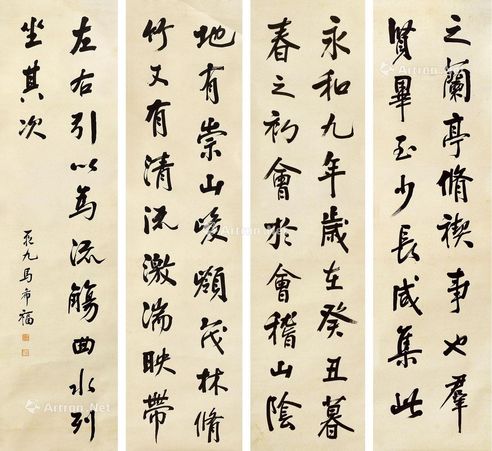 之蘭亭脩禊事也羣
賢畢至少長咸集此
永和九年歲在癸丑暮
春之初會於會稽山陰
地有崇山峻領茂林脩
竹又有清流激湍映帶
左右引以為流觴曲水列
坐其次
九馬希福
Artron.Net
Artron.Net
Artron.Net
Artron.Net